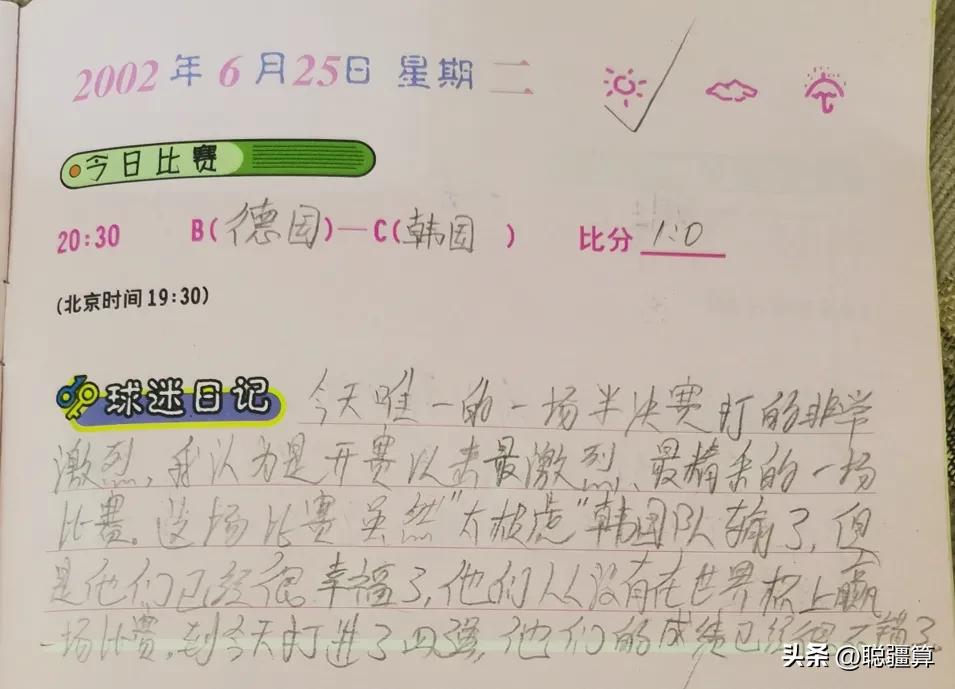 2002年6月25日 星期二
今日比赛
20:30 B(德国)—C(韩国) 比分 1:0
(北京时间19:30)
球迷日记 今天唯一的一场半决赛打的非常
激烈,我认为是开赛以来最激烈、最精采的一场
比赛。这场比赛虽然“太极虎”韩国队输了,但
是他们已经很幸福了,他们从没有在世界杯上赢
一场比赛,到今天打进了四强,他们的成绩已经很不错了。
头条 @聪疆算